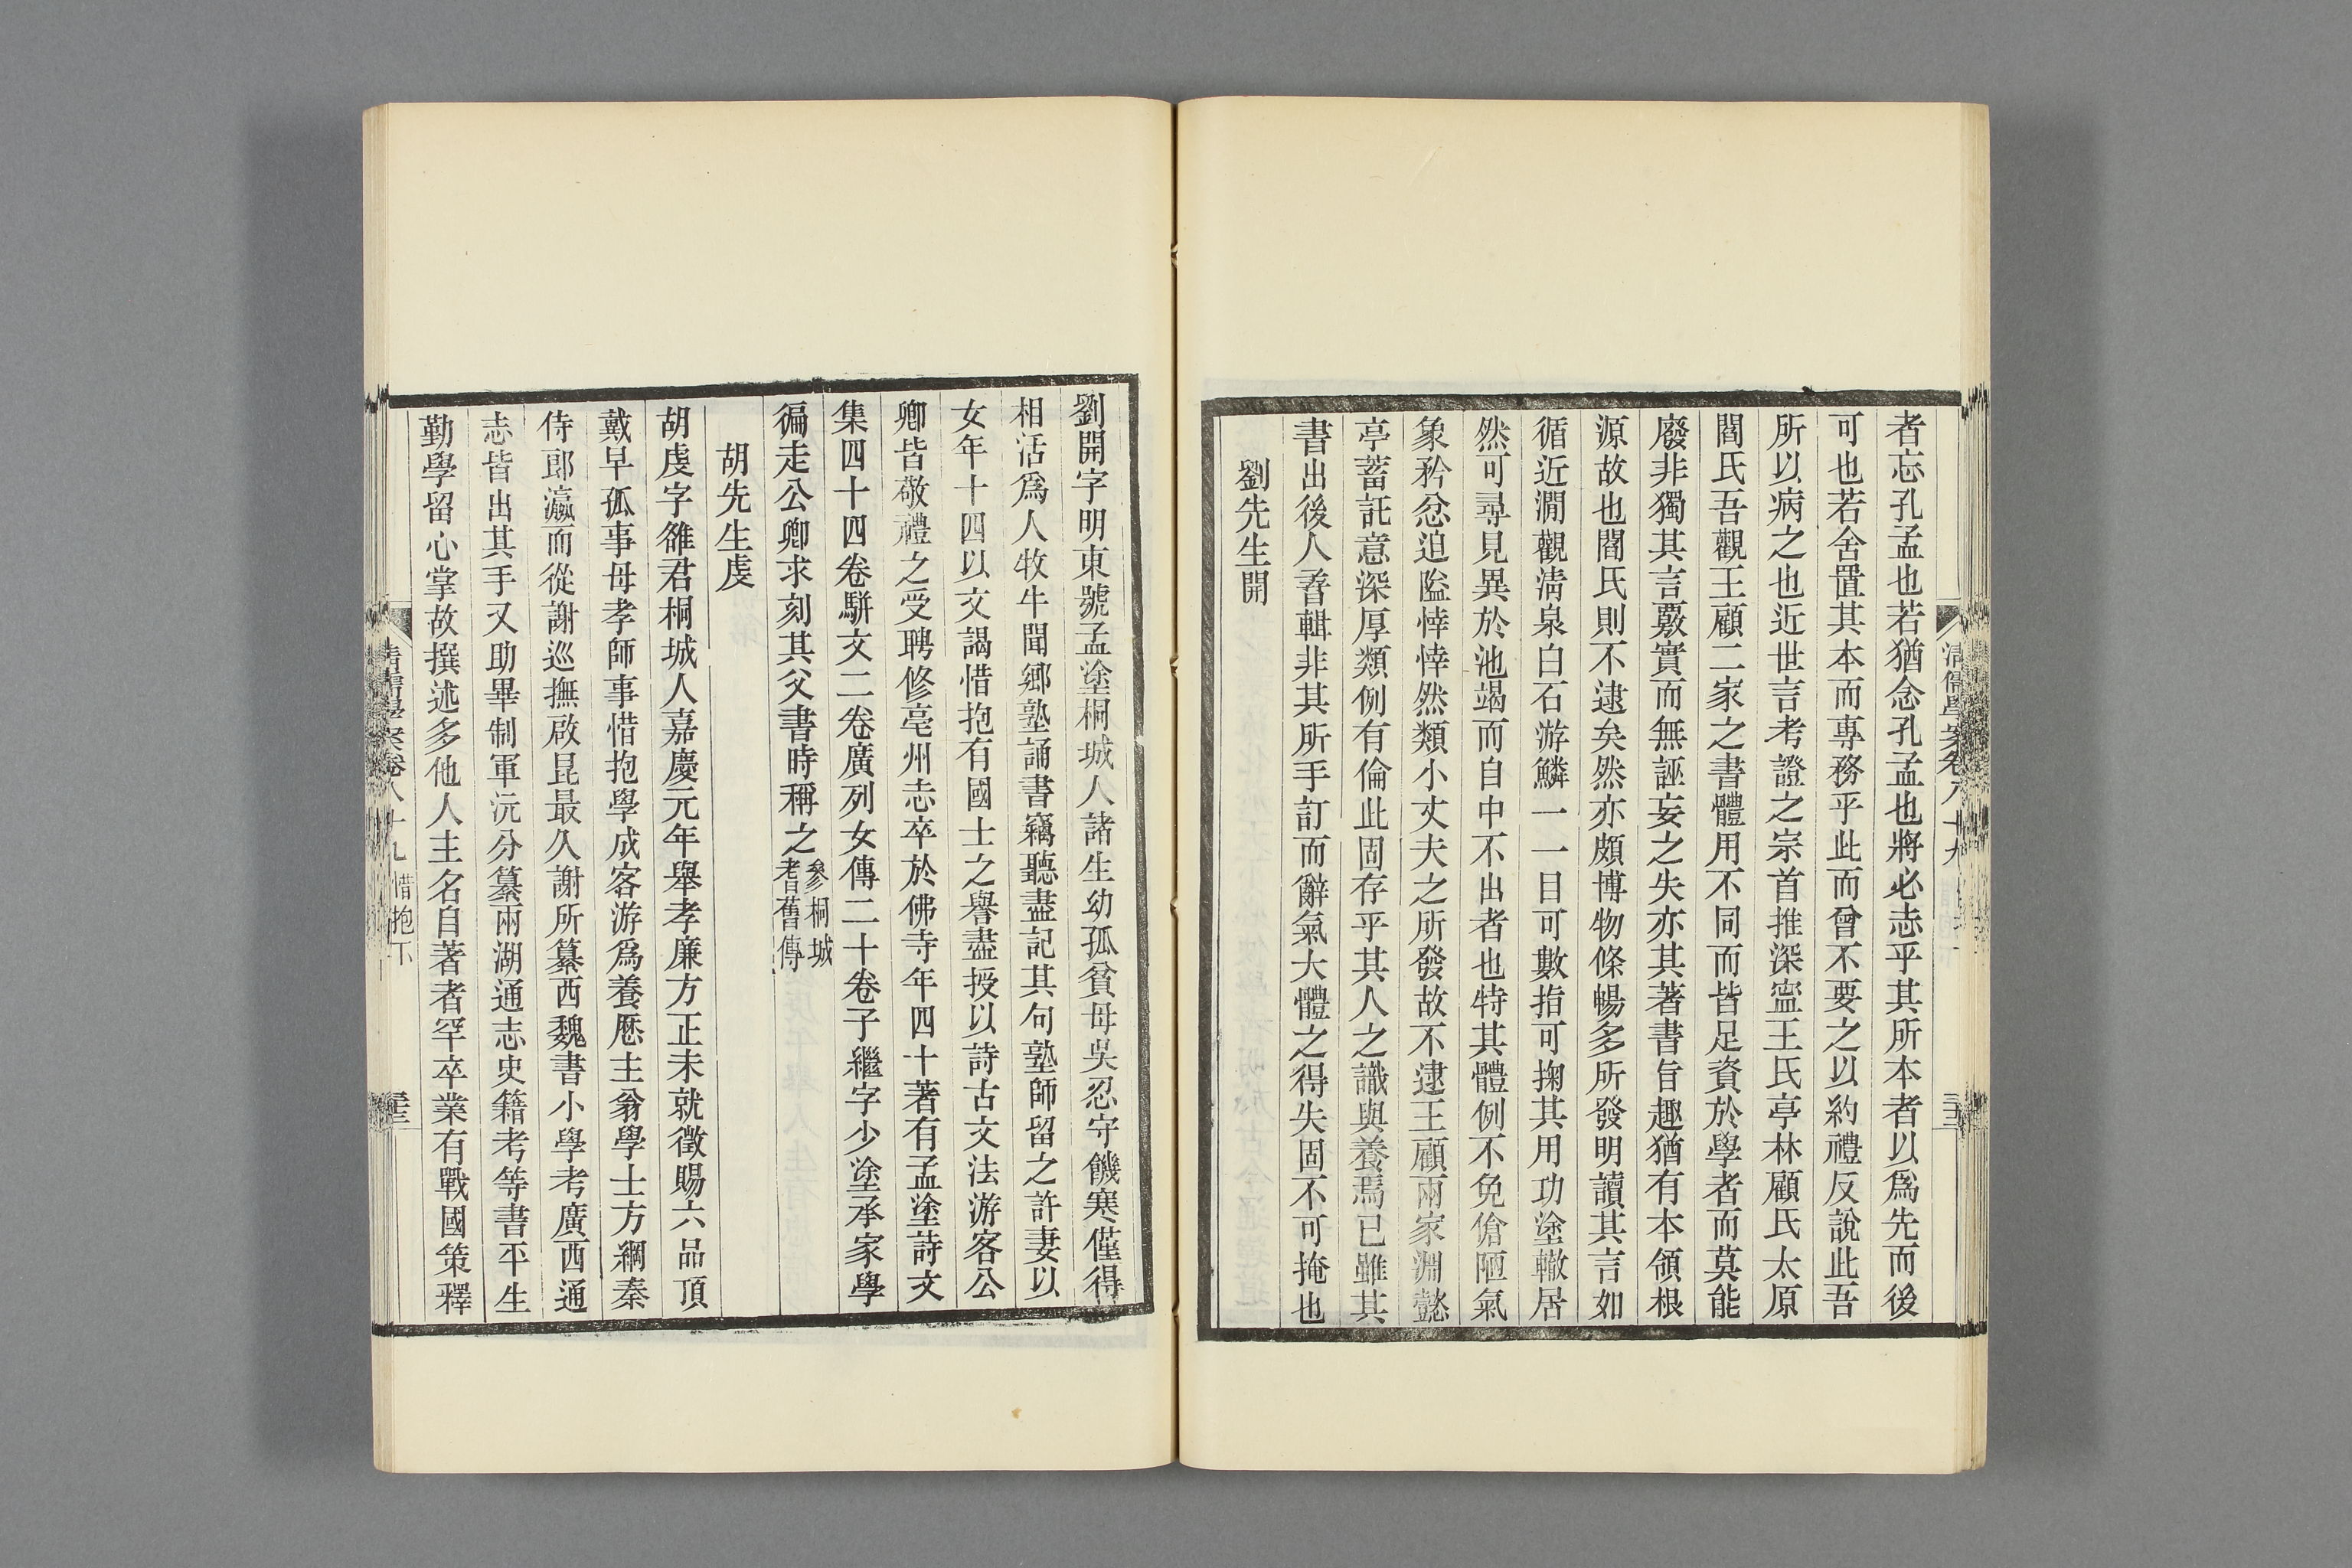 者忘孔孟也若猶念孔孟也將必志乎其所本者以爲先而後
可也若舍置其本而專務乎此而曾不要之以約禮反說此吾
所以病之也近世言考證之宗首推深寍王氏亭林顧氏太原
閻氏吾觀王顧二家之書體用不同而皆足資於學者而莫能
廢非獨其言覈實而無誣妄之失亦其著書旨趣猶有本領根
源故也閻氏則不逮矣然亦頗博物條暢多所發明讀其言如
循近澗觀淸泉白石游鱗一一目可數指可掬其用功塗轍居
然可尋見異於池竭而自中不出者也特其體例不免傖陋氣
象矜忿迫隘悻悻然類小丈夫之所發故不逮王顧兩家淵懿
亭蓄託意深厚類例有倫此固存乎其人之識與養焉已雖其
書出後人香輯非其所手訂而辭氣大體之得失固不可掩也
劉先生開
劉開字明東號孟塗桐城人諸生幼孤貧母吳忍守饑寒僅得
相活爲人牧牛聞鄉塾誦書竊聽盡記其句塾師留之許妻以
女年十四以文謁惜抱有國士之譽盡授以詩古文法游客公
卿皆敬禮之受聘修亳州志卒於佛寺年四十著有孟塗詩文
集四十四卷駢文二卷廣列女傳二十卷子繼字少塗承家學
徧走公卿求刻其父書時稱之參桐城
耆舊傳
胡先生虔
胡虔字雒君桐城人嘉慶元年舉孝廉方正未就徵賜六品頂
戴早孤事母孝師事惜抱學成客游爲養厯主翁學士方綱秦
侍郎瀛而從謝巡撫啟昆最久謝所纂西魏書小學考廣西通
志皆出其手又助畢制軍沅分纂兩湖通志史籍考等書平生
勤學留心掌故撰述多他人主名自著者罕卒業有戰國策釋
惜抱下